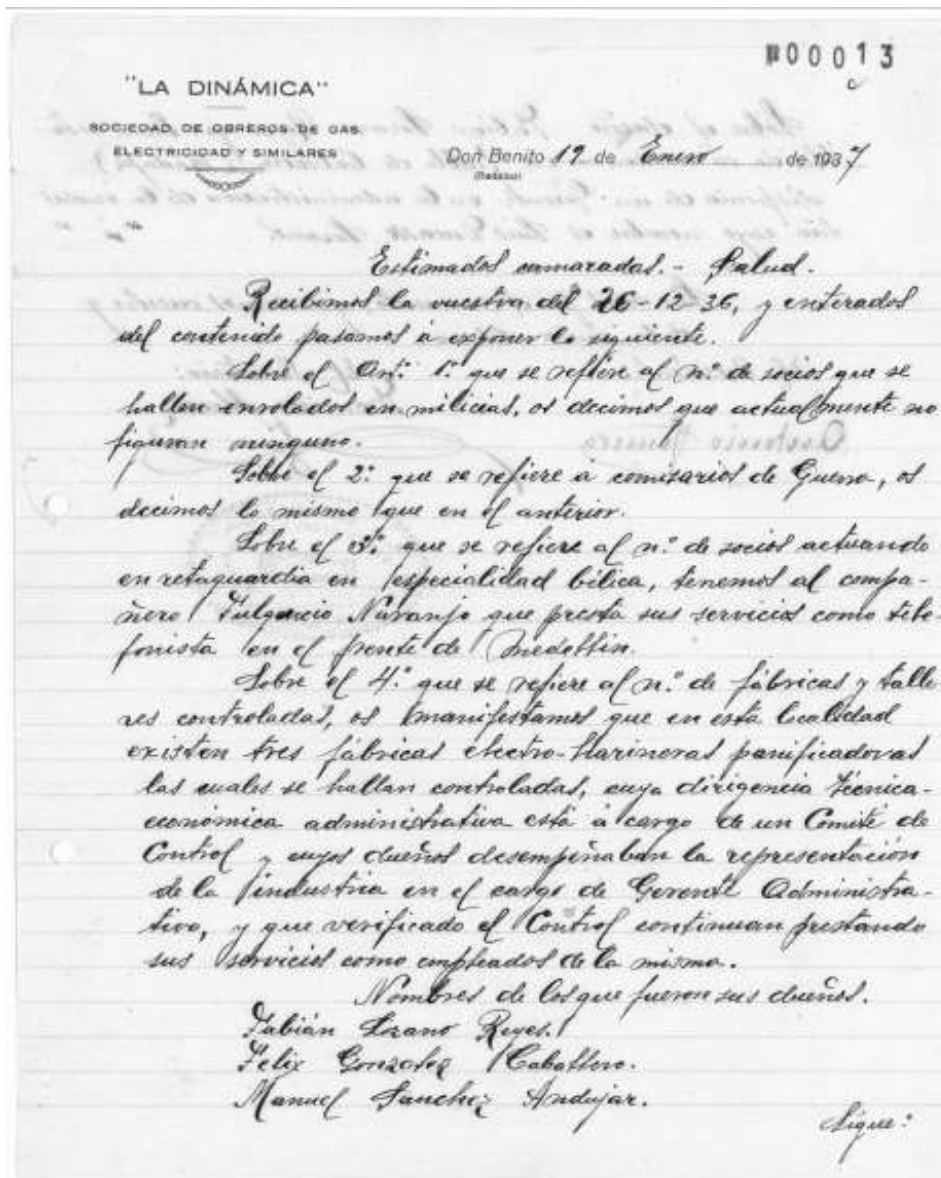 Nº 000013
"LA DINÁMICA"
SOCIEDAD DE OBREROS DE GAS,
ELECTRICIDAD Y SIMILARES
Don Benito 19 de Enero de 1937
(Badajoz)
Estimados camaradas.- Salud.
Recibimos la vuestra del 26-12-36, y enterados
del contenido pasamos á exponer lo siguiente.
Sobre el Art: 1º que se refiere al nº de socios que se
hallen enrolados en milicias, os decimos que actualmente no
figuran ninguno.
Sobre el 2º que se refiere á comisarios de Guerra, os
decimos lo mismo que en el anterior.
Sobre el 3º que se refiere al nº de socios actuando
en retaguardia en especialidad bélica, tenemos al compa-
ñero Fulgencio Naranjo que presta sus servicios como tele-
fonista en el frente de Medellin.
Sobre el 4º que se refiere al nº de fábricas y talle
res controladas, os manifestamos que en esta localidad
existen tres fábricas electro-harineras panificadoras
las cuales se hallan controladas, cuya dirigencia técnica-
económica administrativa está á cargo de un Comité de
Control y cuyos dueños desempeñaban la representación
de la industria en el cargo de Gerente Administra-
tivo, y que verificado el Control continuan prestando
sus servicios como empleados de la misma.
Nombres de los que fueron sus dueños.
Fabián Lozano Reyes.
Felix Gonzalez Caballero.
Manuel Sanchez Andujar.
Sigue: